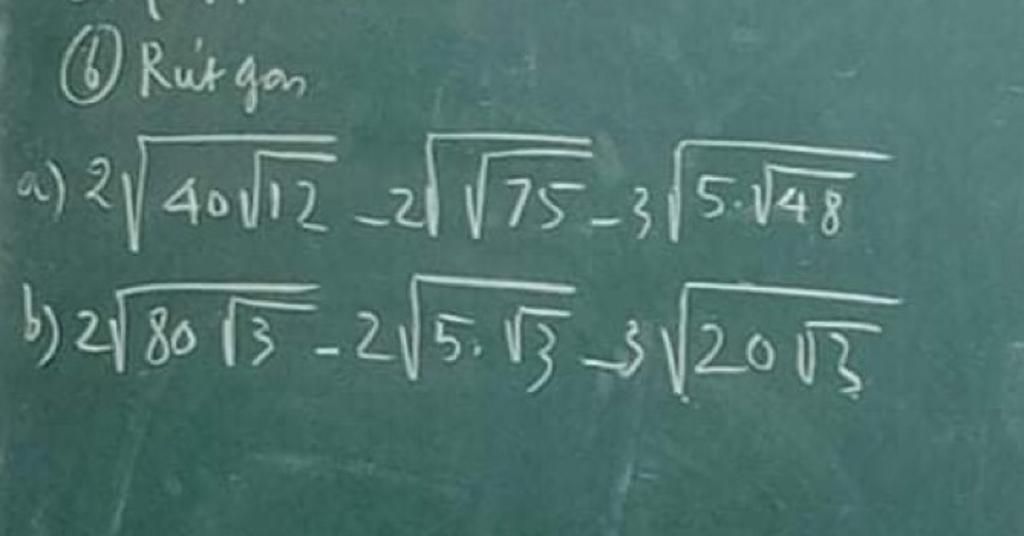 ⑥ Rút gọn
a) 2√(40√12) - 2√(√75) - 3√(5.√48)
b) 2√(80√3) - 2√(5.√3) - 3√(20√3)